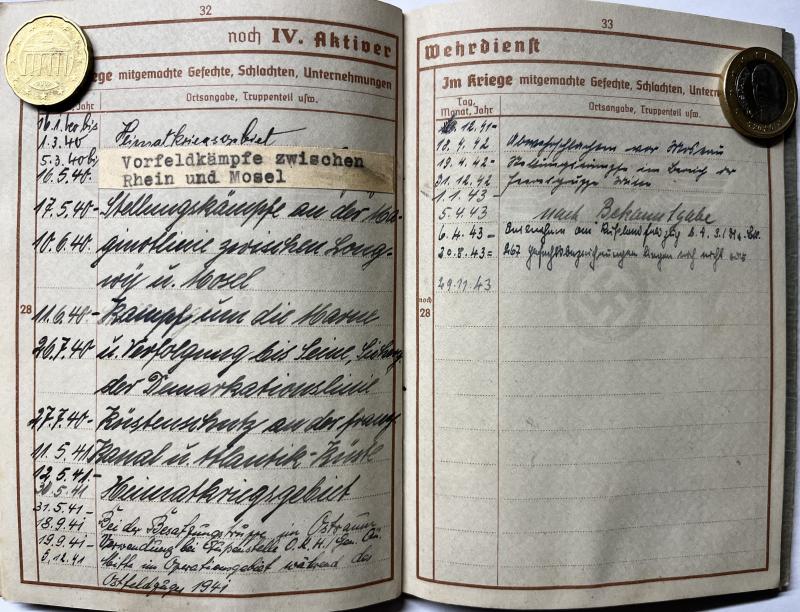 32
noch IV. Aktiver
Kriege mitgemachte Gefechte, Schlachten, Unternehmungen
Jahr Ortsangabe, Truppenteil usw.
16.1.40 bis Heimatkriegsgebiet
1.3.40
5.3.40 bis Vorfeldkämpfe zwischen
16.5.40 Rhein und Mosel
17.5.40- Stellungskämpfe an der Ma-
10.6.40- ginotlinie zwischen Long-
wy u. Mosel
28
11.6.40- Kampf um die Marne
26.7.40 u. Verfolgung bis Seine,
der Demarkationslinie
27.7.40- Küstenschutz an der franz.
11.5.41 Kanal u. Atlantik-Küste
12.5.41-
30.5.41 Heimatkriegsgebiet
31.5.41-
18.9.41. Bei der Besatzungstruppe im Ostraum
19.9.41- Verwendung bei O.K.H./Gen. Qu.
5.12.41 Mitte im Operationsgebiet während des
Ostfeldzuges 1941
33
Wehrdienst
Im Kriege mitgemachte Gefechte, Schlachten, Untern
Tag, Monat, Jahr Ortsangabe, Truppenteil usw.
12.41-
18.4.42 Abwehrschlachten vor Moskau
19.4.42- Stellungskämpfe im Bereich der
31.12.42 Heeresgruppe Mitte
1.1.43 -
5.4.43 nach Bekanntgabe
6.4.43 -
20.8.43- 267 Gefechtsbezeichnungen liegen noch nicht vor
29.11.43
noch
28